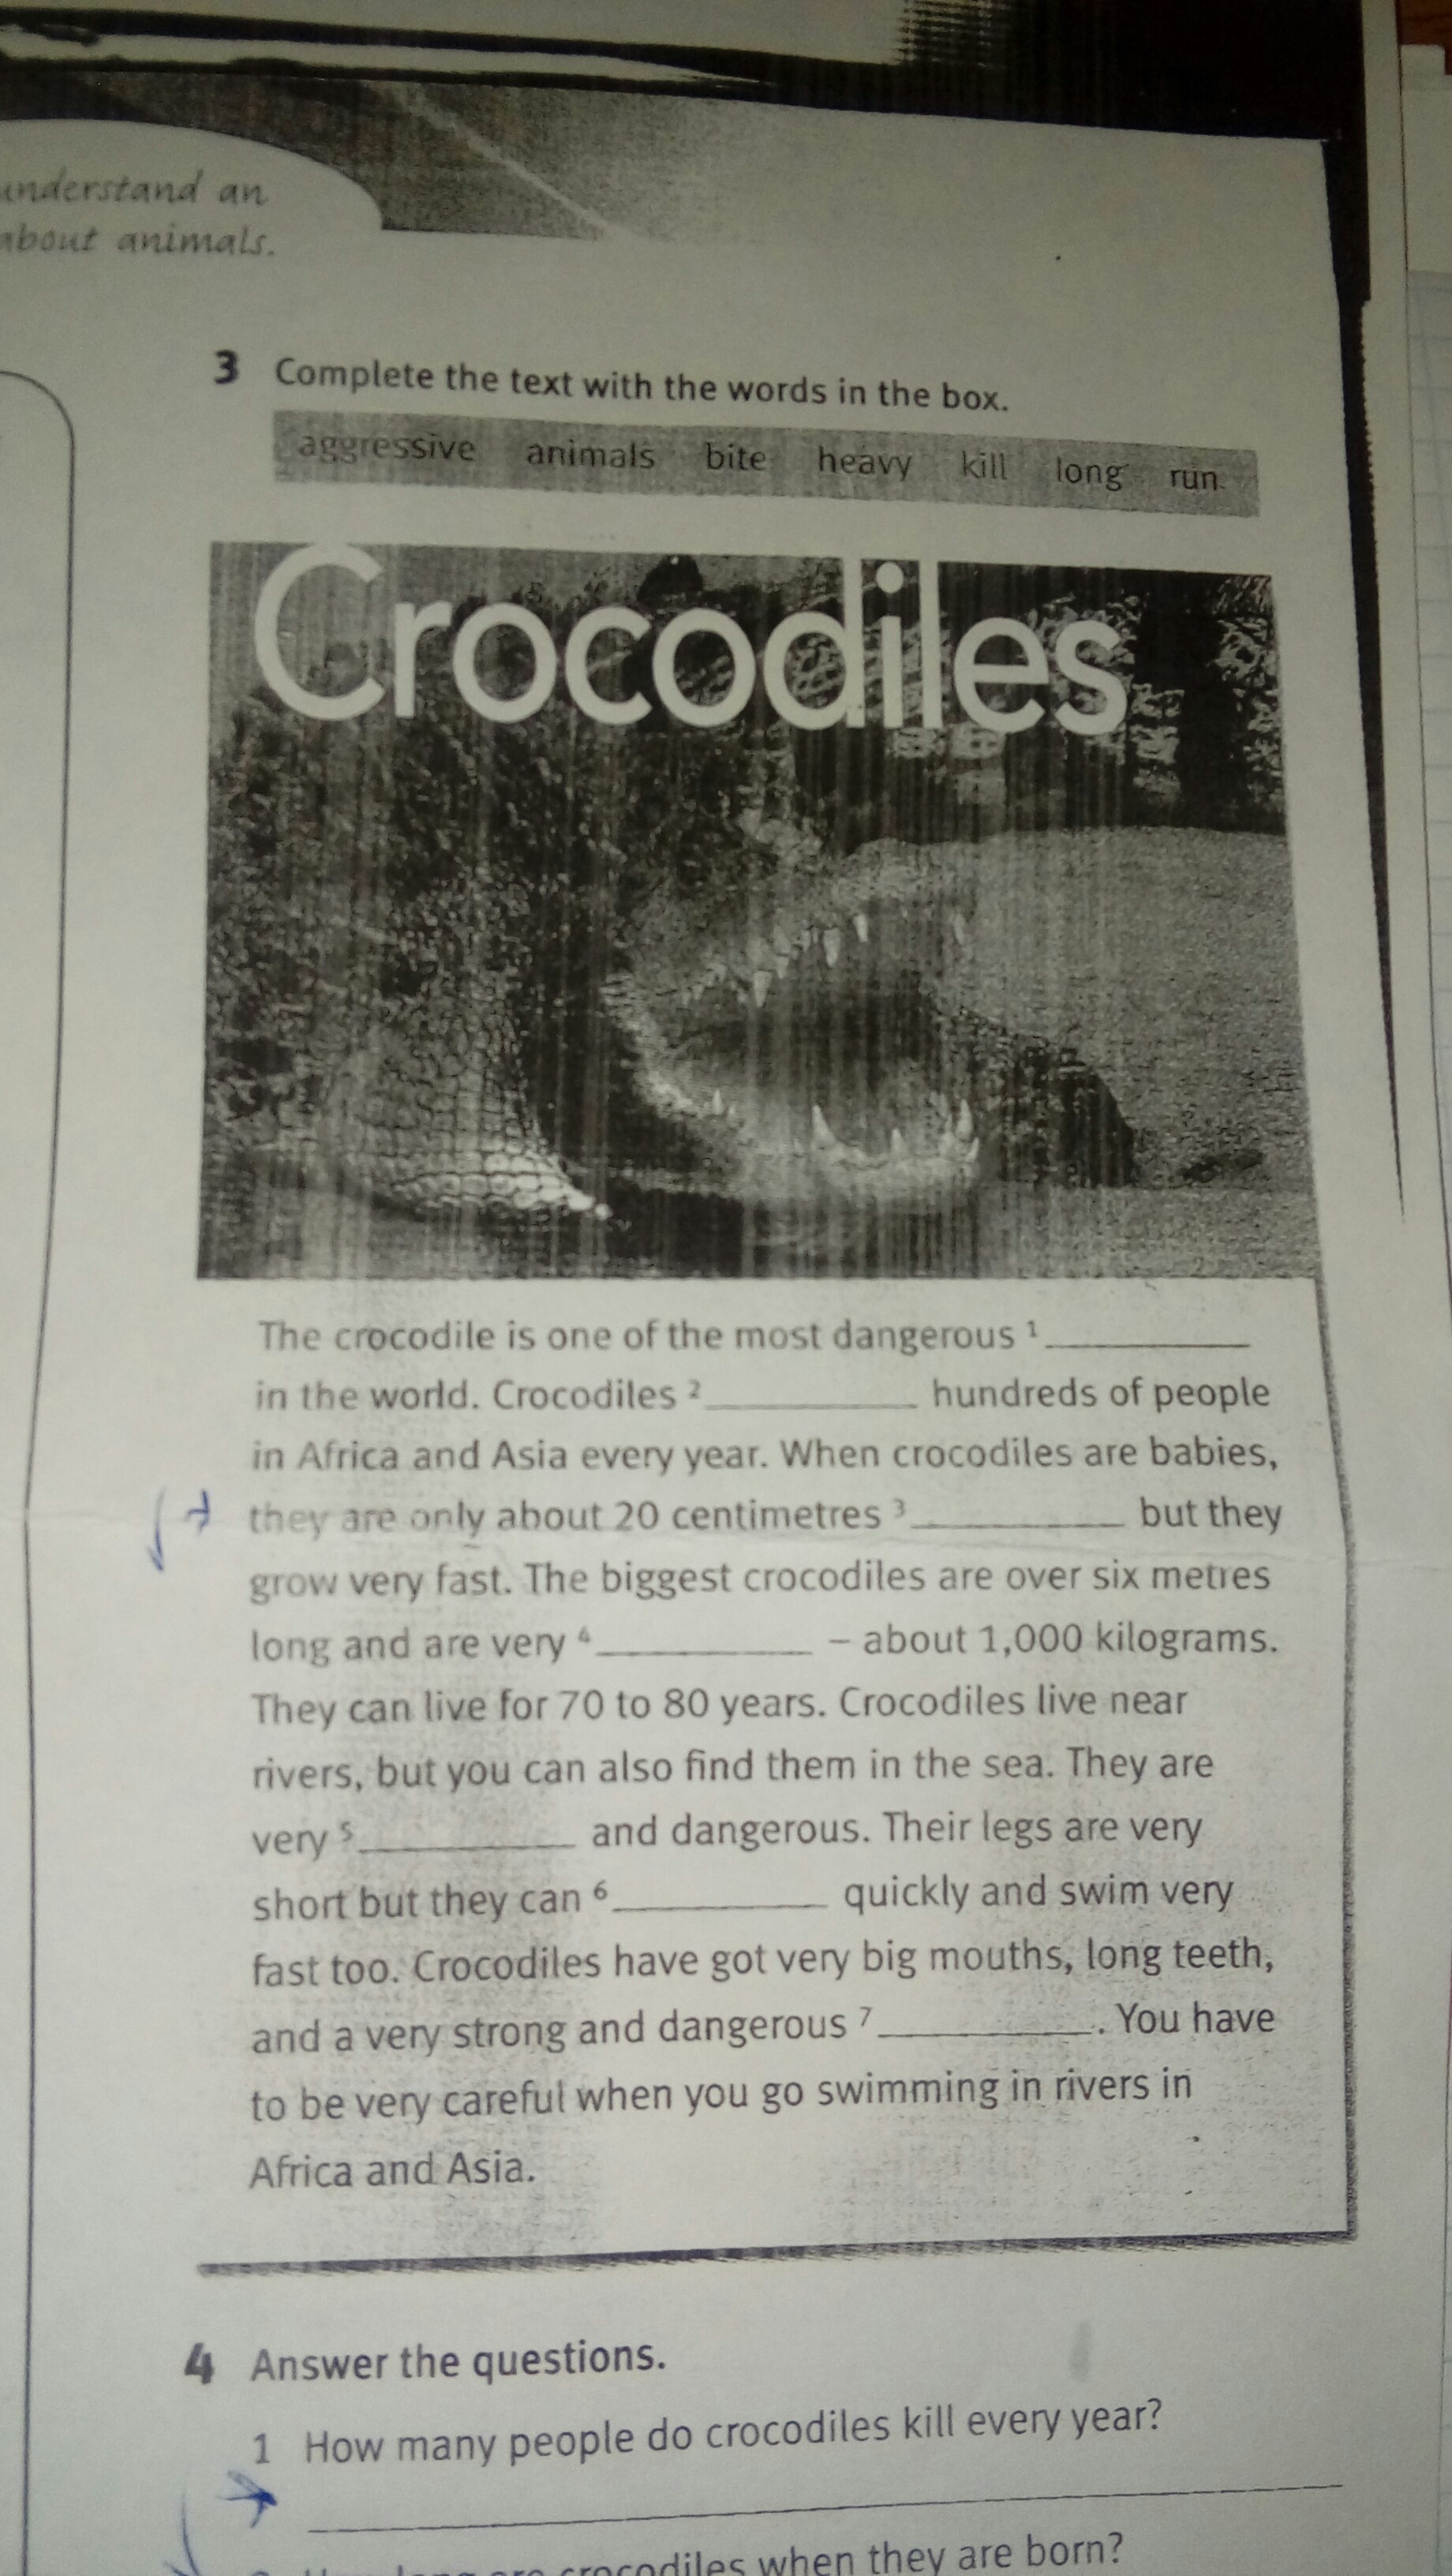 understand an
about animals.
3 Complete the text with the words in the box.
aggressive animals bite heavy kill long run
Crocodiles
The crocodile is one of the most dangerous 1 __________
in the world. Crocodiles 2 __________ hundreds of people
in Africa and Asia every year. When crocodiles are babies,
they are only about 20 centimetres 3 __________ but they
grow very fast. The biggest crocodiles are over six metres
long and are very 4 __________ – about 1,000 kilograms.
They can live for 70 to 80 years. Crocodiles live near
rivers, but you can also find them in the sea. They are
very 5 __________ and dangerous. Their legs are very
short but they can 6 __________ quickly and swim very
fast too. Crocodiles have got very big mouths, long teeth,
and a very strong and dangerous 7 __________. You have
to be very careful when you go swimming in rivers in
Africa and Asia.
4 Answer the questions.
1 How many people do crocodiles kill every year?
crocodiles when they are born?